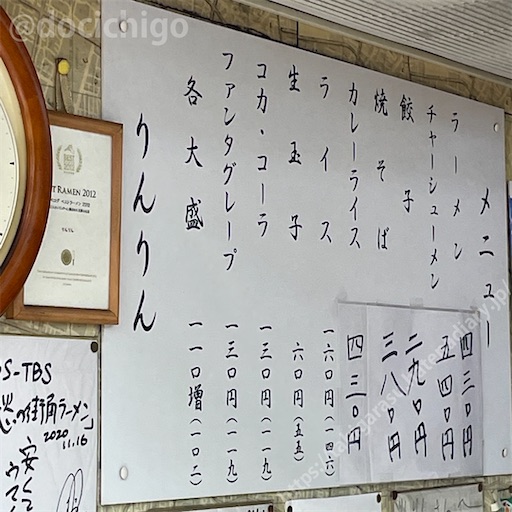 @docichigo
メニュー
ラーメン 四三〇円
チャーシューメン 五四〇円
餃子 二九〇円
焼そば 三八〇円
カレーライス 四三〇円
ライス 一六〇円(一四六)
生玉子 六〇円(五五)
コカ・コーラ 一三〇円(一一九)
ファンタグレープ 一三〇円(一一九)
各大盛 一一〇増(一〇二)
りんりん
T RAMEN 2012
S-TBS
街角ラーメン」
2020
11.16